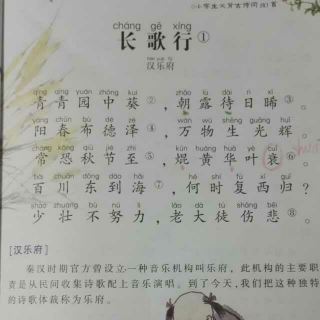 小学生必背古诗词
cháng gē xíng
长歌行①
hàn yuè fǔ
汉乐府
qīng qīng yuán zhōng kuí zhāo lù dài rì xī
青青园中葵②，朝露待日晞③。
yáng chūn bù dé zé wàn wù shēng guāng huī
阳春布德泽④，万物生光辉。
cháng kǒng qiū jié zhì kūn huáng huā yè
常恐秋节至⑤，焜黄华叶衰⑥。
bǎi chuān dōng dào hǎi hé shí fù xī guī
百川东到海⑦，何时复西归？
shào zhuàng bù nǔ lì lǎo dà tú shāng bēi
少壮不努力，老大徒伤悲⑧。
[汉乐府]
秦汉时期官方曾设立一种音乐机构叫乐府，此机构的主要职
责是从民间收集诗歌配上音乐演唱。到了今天，我们把这种独特
的诗歌体裁称为乐府。